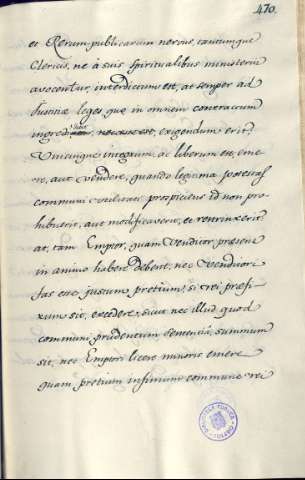 470.
et Rerum publicarum nervus, tantumque
Clericis, ne à suis spiritualibus ministeriis
avocentur, interdictum est, at semper ad
Justitiæ leges, quæ in omnem contractum
exigendum erit.
Unicuique integrum, ac liberum est, eme
re, aut vendere, quando legitima potestas
communi utilitati prospiciens id non pro
hibuerit, aut modificaverit, et restrinxerit
at, tam Emptor, quam Venditor, præsens
in animo habere debent, nec Venditori
fas esse justum pretium, si rei præfi-
xum sit, excedere, sicut nec illud quod
communi prudentum sententiâ, summum
sit, nec Emptori licere minoris emere
quam pretium infimum commune rei